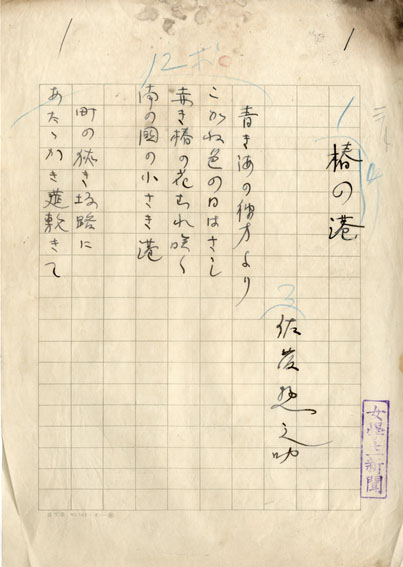 1
1
椿の港
佐藤惣之助
青き海の彼方より
こがね色の日はさし
赤き椿の花むれ咲く
南の国の小さき港
町の狭き坂路に
あたゝかき
女学生新聞
12ポ
3